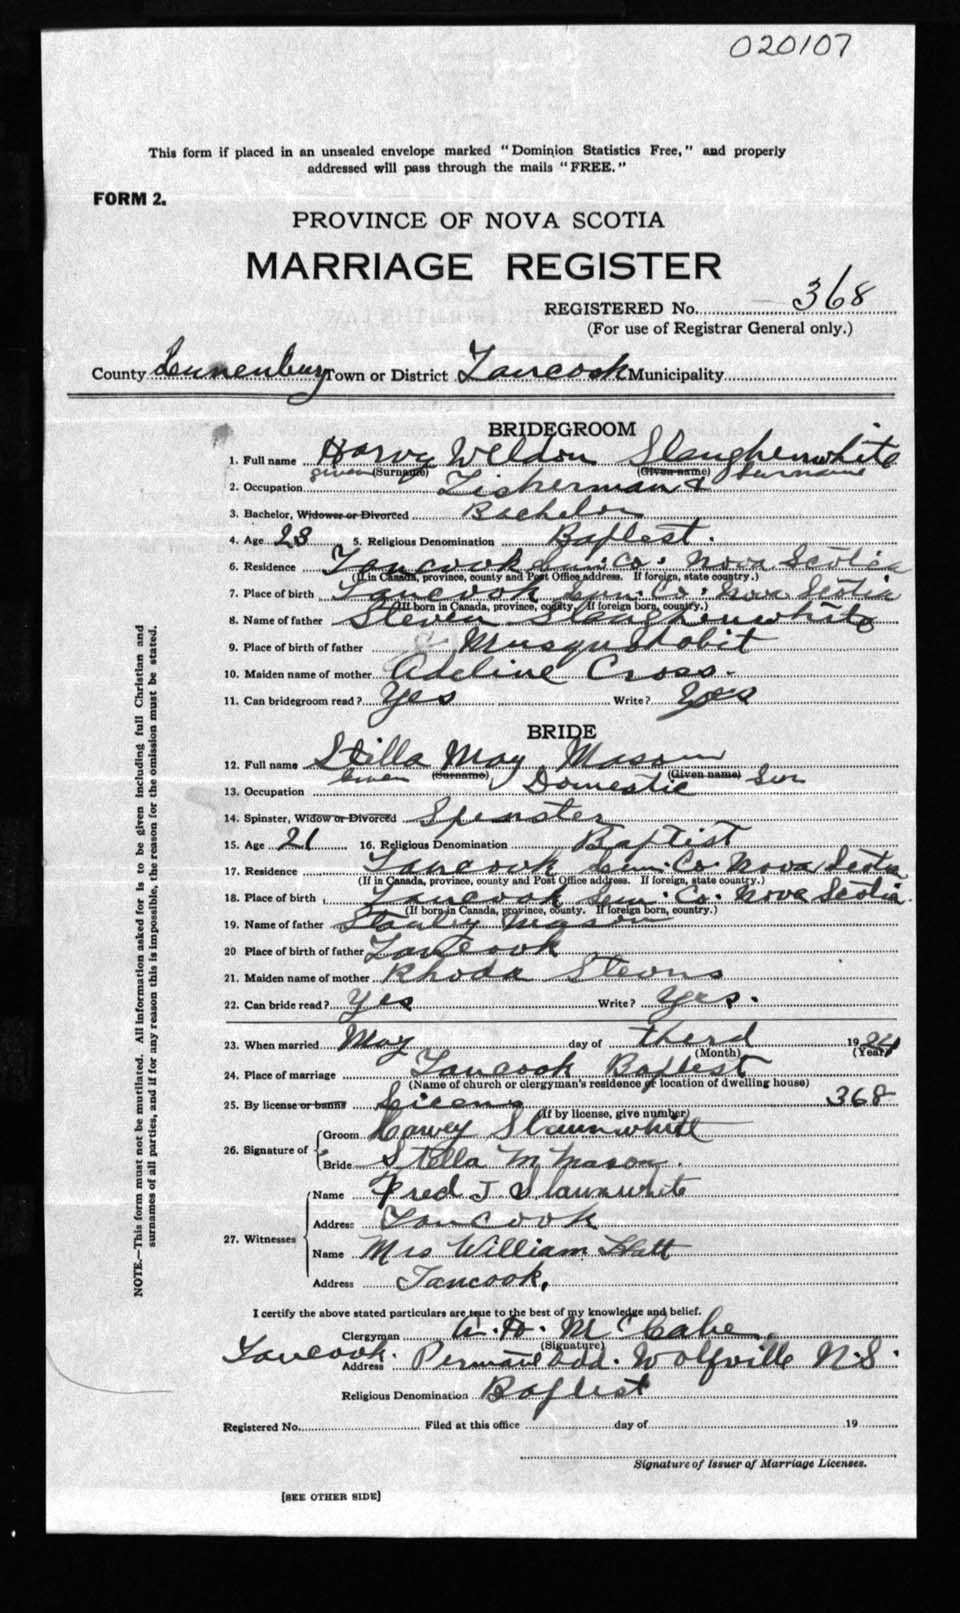 020107
This form if placed in an unsealed envelope marked "Dominion Statistics Free," and properly
addressed will pass through the mails "FREE."
FORM 2.
PROVINCE OF NOVA SCOTIA
MARRIAGE REGISTER
REGISTERED No. 368
(For use of Registrar General only.)
County Lunenburg Town or District Tancook Municipality
BRIDEGROOM
1. Full name Harvy Weldon Slaughenwhite
given (Surname) (Given name) Surname
2. Occupation Fisherman
3. Bachelor, Widower or Divorced Bachelor
4. Age 23 5. Religious Denomination Baptest.
6. Residence Tancook Lun. Co. Nova Scotia
(If in Canada, province, county and Post Office address. If foreign, state country.)
7. Place of birth Tancook Lun. Co. Nova Scotia
(If born in Canada, province, county. If foreign born, country.)
8. Name of father Steven Slaughenwhite
9. Place of birth of father Musqudobit
10. Maiden name of mother Adeline Cross.
11. Can bridegroom read? Yes Write? Yes
BRIDE
12. Full name Stilla May Mason
Given (Surname) (Given name) Sur
13. Occupation Domestic
14. Spinster, Widow or Divorced Spinster
15. Age 21 16. Religious Denomination Baptist
17. Residence Tancook Lun. Co. Nova Scotia
(If in Canada, province, county and Post Office address. If foreign, state country.)
18. Place of birth Tancook Lun. Co. Nova Scotia.
(If born in Canada, province, county. If foreign born, country.)
19. Name of father Stanly Mason
20 Place of birth of father Tancook
21. Maiden name of mother Rhoda Stevns
22. Can bride read? Yes Write? Yes.
23. When married May day of therd 1924
(Month) (Year)
24. Place of marriage Tancook Baptest
(Name of church or clergyman's residence or location of dwelling house)
25. By license or banns 368
(If by license, give number)
26. Signature of Groom Harvey Slaunwhite
Bride Stella M Mason.
27. Witnesses Name Fred J. Slaunwhite
Address Tancook
Name Mrs William Hatt
Address Tancook,
I certify the above stated particulars are true to the best of my knowledge and belief.
Clergyman A. H. McCabe
(Signature)
Tancook.
Address Permane add. Wolfville N.S.
Religious Denomination Baptist
Registered No. Filed at this office day of 19
Signature of Issuer of Marriage Licenses.
[SEE OTHER SIDE]
NOTE.—This form must not be mutilated. All information asked for is to be given including full Christian and
surnames of all parties, and if for any reason this is impossible, the reason for the omission must be stated.